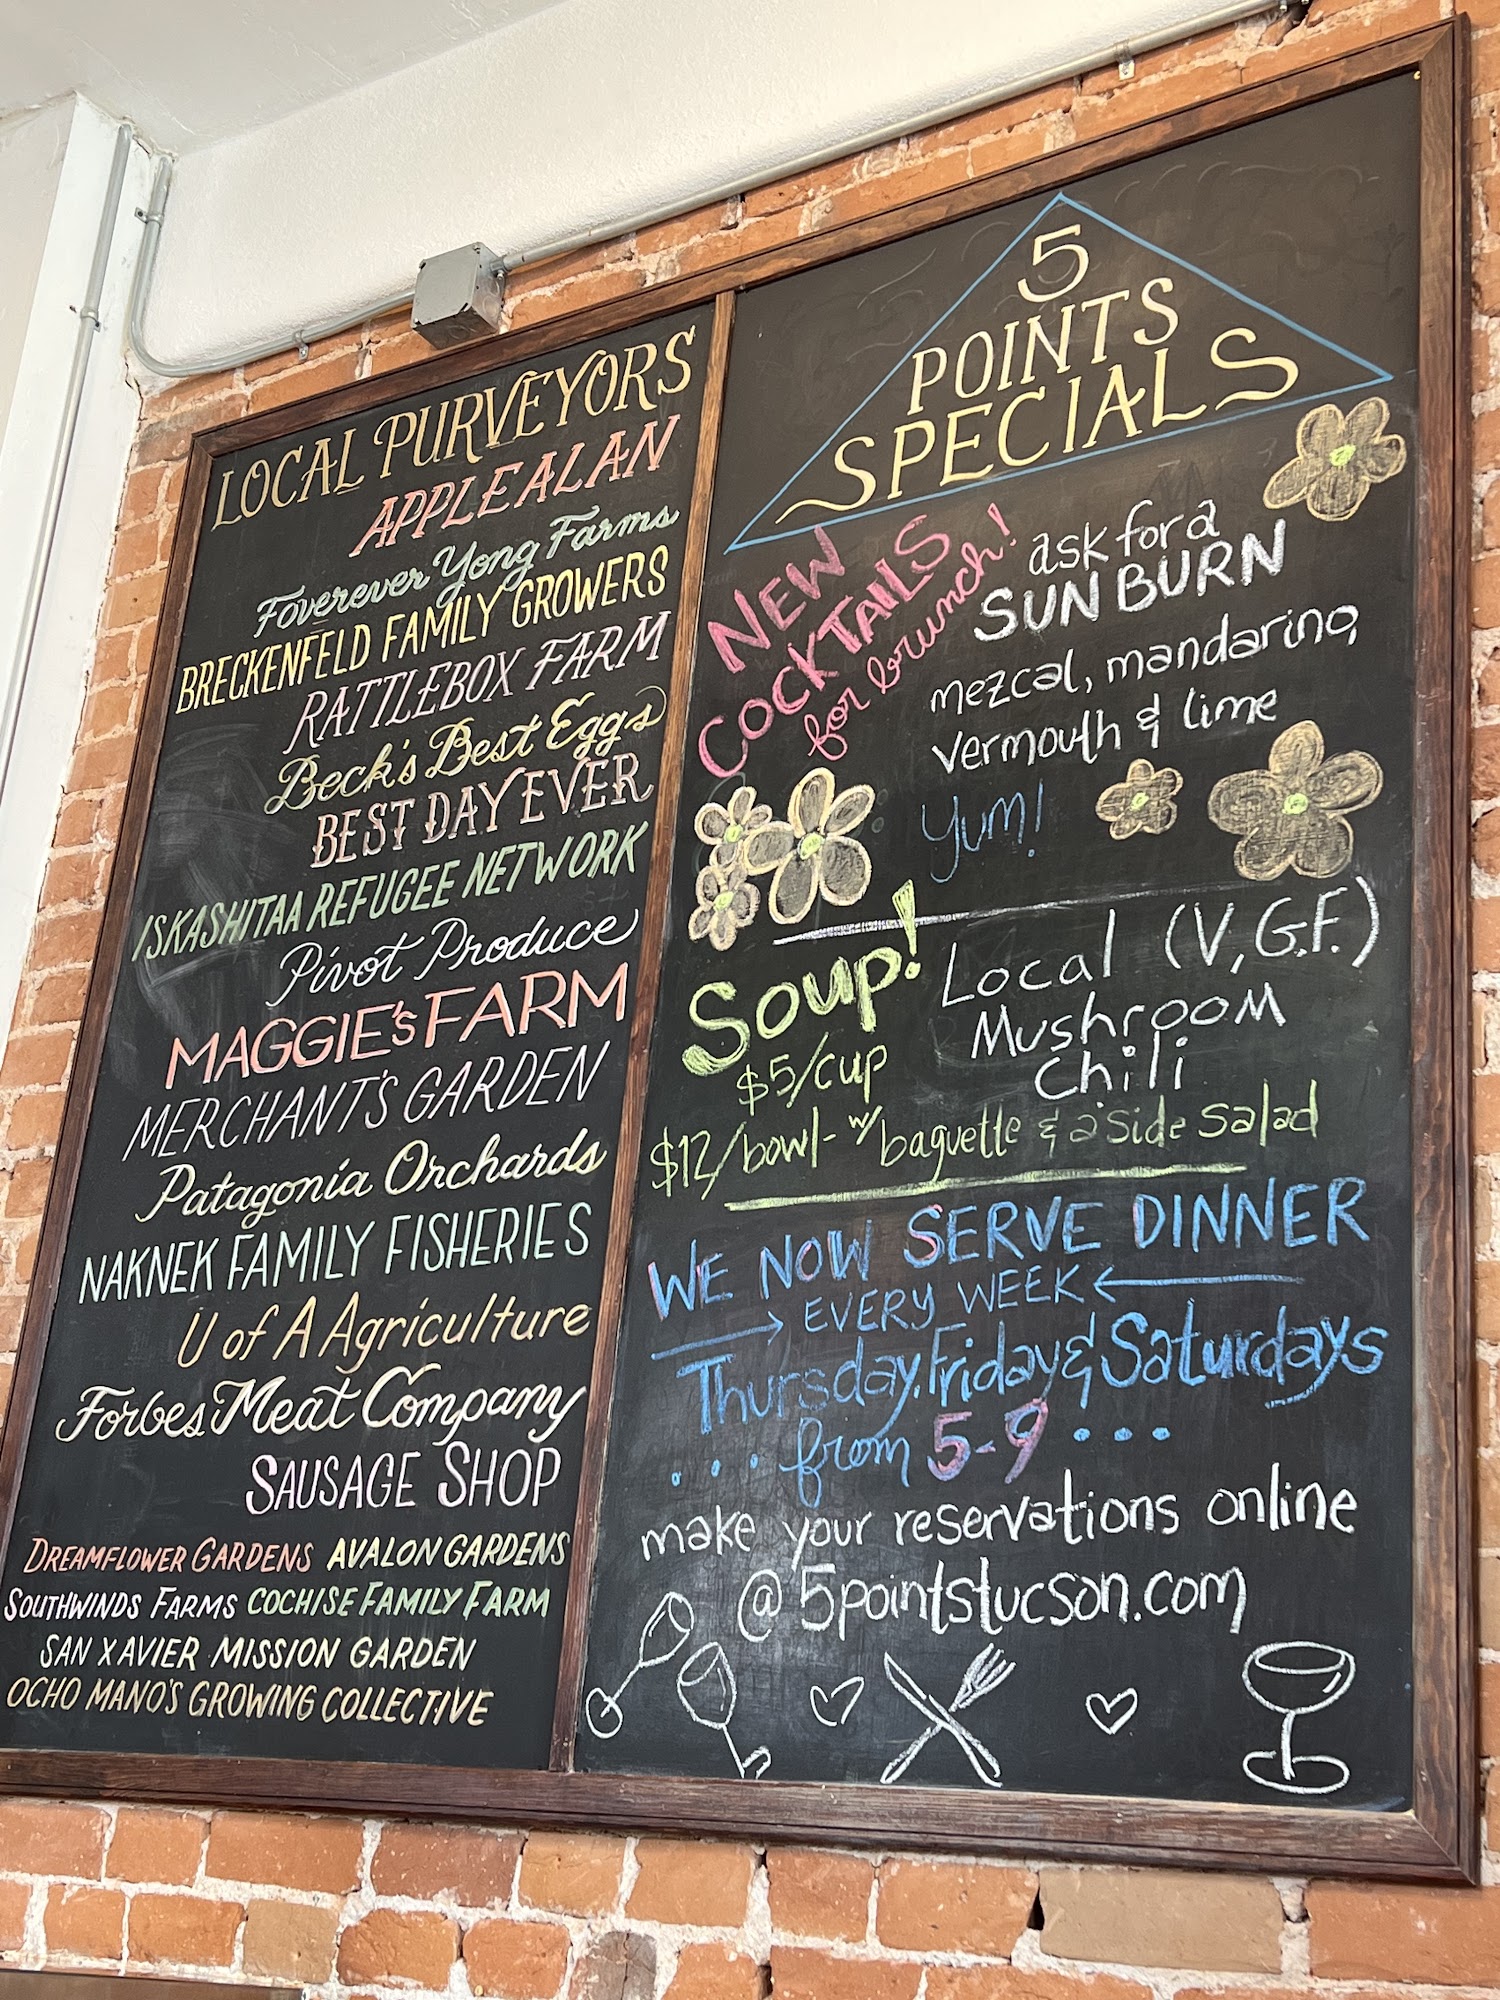 LOCAL PURVEYORS
APPLEALAN
Foverever Yong Farms
BRECKENFELD FAMILY GROWERS
RATTLEBOX FARM
Beck's Best Eggs
BEST DAY EVER
ISKASHITAA REFUGEE NETWORK
Pivot Produce
MAGGIE'S FARM
MERCHANT'S GARDEN
Patagonia Orchards
NAKNEK FAMILY FISHERIES
U of A Agriculture
Forbes Meat Company
SAUSAGE SHOP
DREAMFLOWER GARDENS AVALON GARDENS
SOUTHWINDS FARMS COCHISE FAMILY FARM
SAN XAVIER MISSION GARDEN
OCHO MANO'S GROWING COLLECTIVE
5
POINTS
SPECIALS
NEW
COCKTAILS
for brunch!
ask for a
SUN BURN
mezcal, mandarino,
vermouth & lime
yum!
Soup!
Local (V, G.F.)
Mushroom
Chili
$5/cup
$12/bowl - w/ baguette & a side salad
WE NOW SERVE DINNER
EVERY WEEK
Thursday, Friday & Saturdays
... from 5-9 ...
make your reservations online
@ 5pointstucson.com